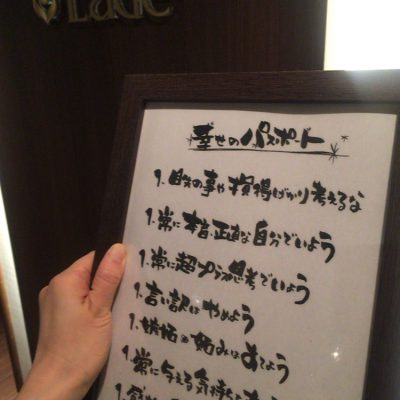 Lade
幸せのパスポート
1.自分の事や損得ばかり考えるな
1.常に本音、正直な自分でいよう
1.常に超プラス思考でいよう
1.言い訳はやめよう
1.嫉妬や妬みはすてよう
1.常に与える気持ち